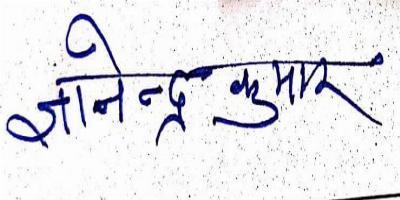 ज्ञानेन्द्र कुमार